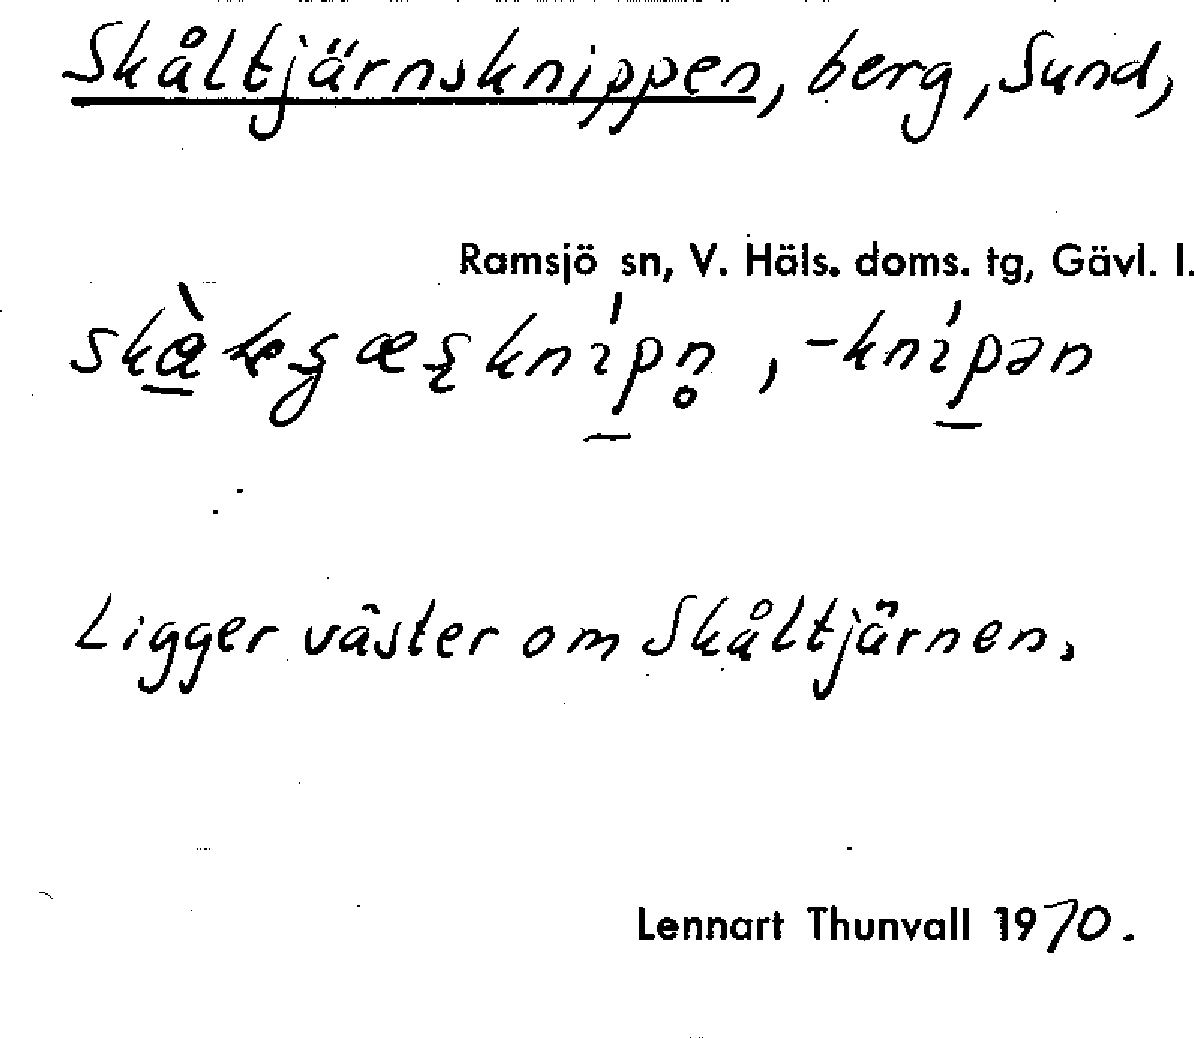 Skåltjärnsknippen, berg, Sund,
Ramsjö sn, V. Häls. doms. tg, Gävl. l.
, -knípən
Ligger väster om Skåltjärnen.
Lennart Thunvall 1970.